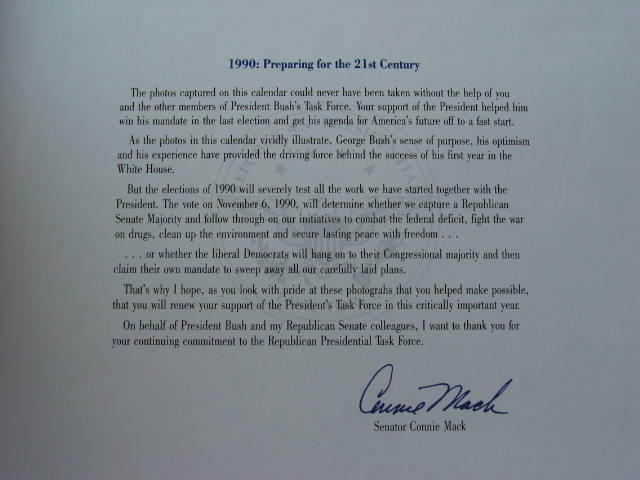 1990: Preparing for the 21st Century
The photos captured on this calendar could never have been taken without the help of you
and the other members of President Bush's Task Force. Your support of the President helped him
win his mandate in the last election and get his agenda for America's future off to a fast start.
As the photos in this calendar vividly illustrate, George Bush's sense of purpose, his optimism
and his experience have provided the driving force behind the success of his first year in the
White House.
But the elections of 1990 will severely test all the work we have started together with the
President. The vote on November 6, 1990, will determine whether we capture a Republican
Senate Majority and follow through on our initiatives to combat the federal deficit, fight the war
on drugs, clean up the environment and secure lasting peace with freedom . . .
. . . or whether the liberal Democrats will hang on to their Congressional majority and then
claim their own mandate to sweep away all our carefully laid plans.
That's why I hope, as you look with pride at these photograhs that you helped make possible,
that you will renew your support of the President's Task Force in this critically important year.
On behalf of President Bush and my Republican Senate colleagues, I want to thank you for
your continuing commitment to the Republican Presidential Task Force.
Connie Mack
Senator Connie Mack